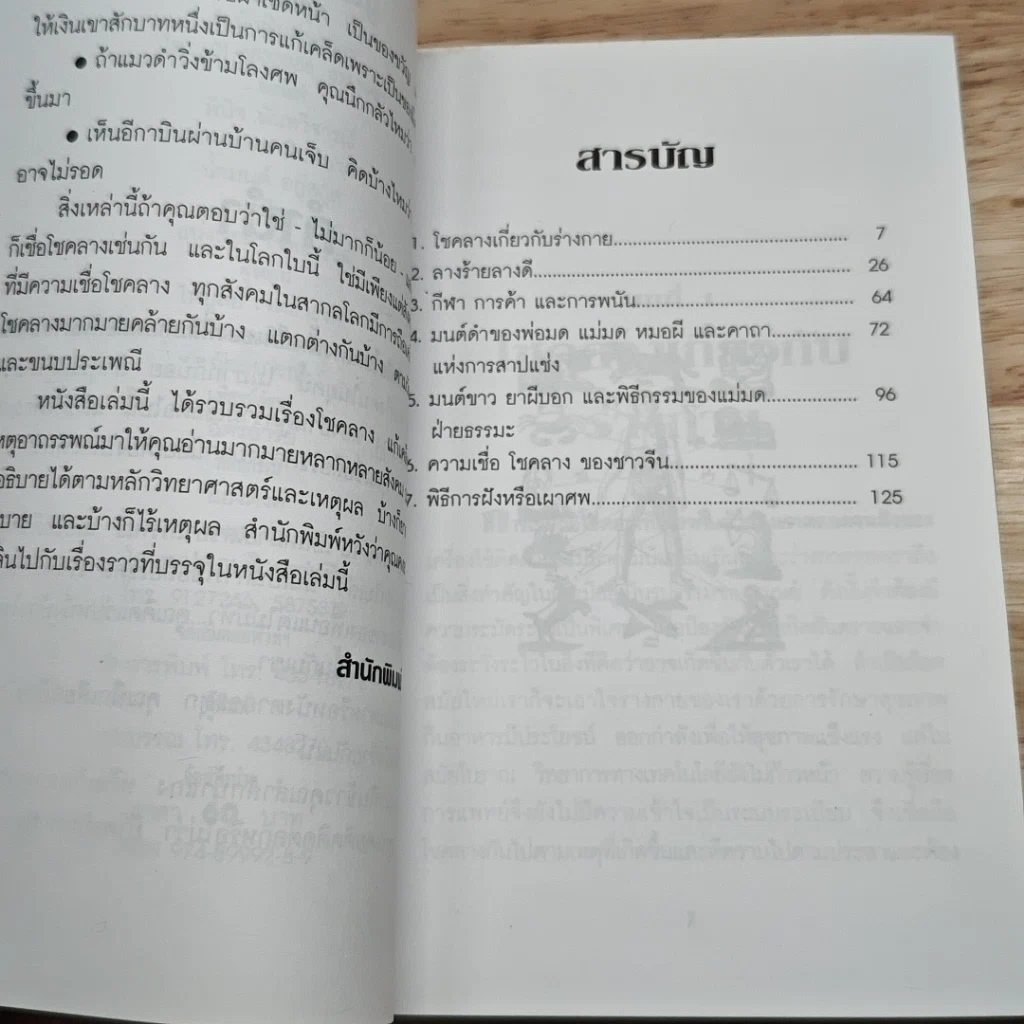 ผ้าเช็ดหน้า เป็นของขวัญ
ให้เงินเขาสักบาทหนึ่งเป็นการแก้เคล็ดเพราะเป็นของ
● ถ้าแมวดำวิ่งข้ามโลงศพ คุณนึกกลัวไหมว่า
ขึ้นมา
● เห็นอีกาบินผ่านบ้านคนเจ็บ คิดบ้างไหมว่า
อาจไม่รอด
สิ่งเหล่านี้ถ้าคุณตอบว่าใช่ - ไม่มากก็น้อย -
ก็เชื่อโชคลางเช่นกัน และในโลกใบนี้ ใช่มีเพียง
ที่มีความเชื่อโชคลาง ทุกสังคมในสากลโลกมีการ
โชคลางมากมายคล้ายกันบ้าง แตกต่างกันบ้าง
และขนบประเพณี
หนังสือเล่มนี้ ได้รวบรวมเรื่องโชคลาง
มาให้คุณอ่านมากมายหลากหลายสังคม
อธิบายได้ตามหลักวิทยาศาสตร์และเหตุผล บ้างก็
และบ้างก็ไร้เหตุผล สำนักพิมพ์หวังว่าคุณ
ไปกับเรื่องราวที่บรรจุในหนังสือเล่มนี้
สำนักพิมพ์
สารบัญ
1. โชคลางเกี่ยวกับร่างกาย 7
2. ลางร้ายลางดี 26
3. กีฬา การค้า และการพนัน 64
4. มนต์ดำของพ่อมด แม่มด หมอผี และคาถา 72
แห่งการสาปแช่ง
5. มนต์ขาว ยาผีบอก และพิธีกรรมของแม่มด 96
ฝ่ายธรรมะ
6. ความเชื่อ โชคลาง ของชาวจีน 115
7. พิธีการฝังหรือเผาศพ 125